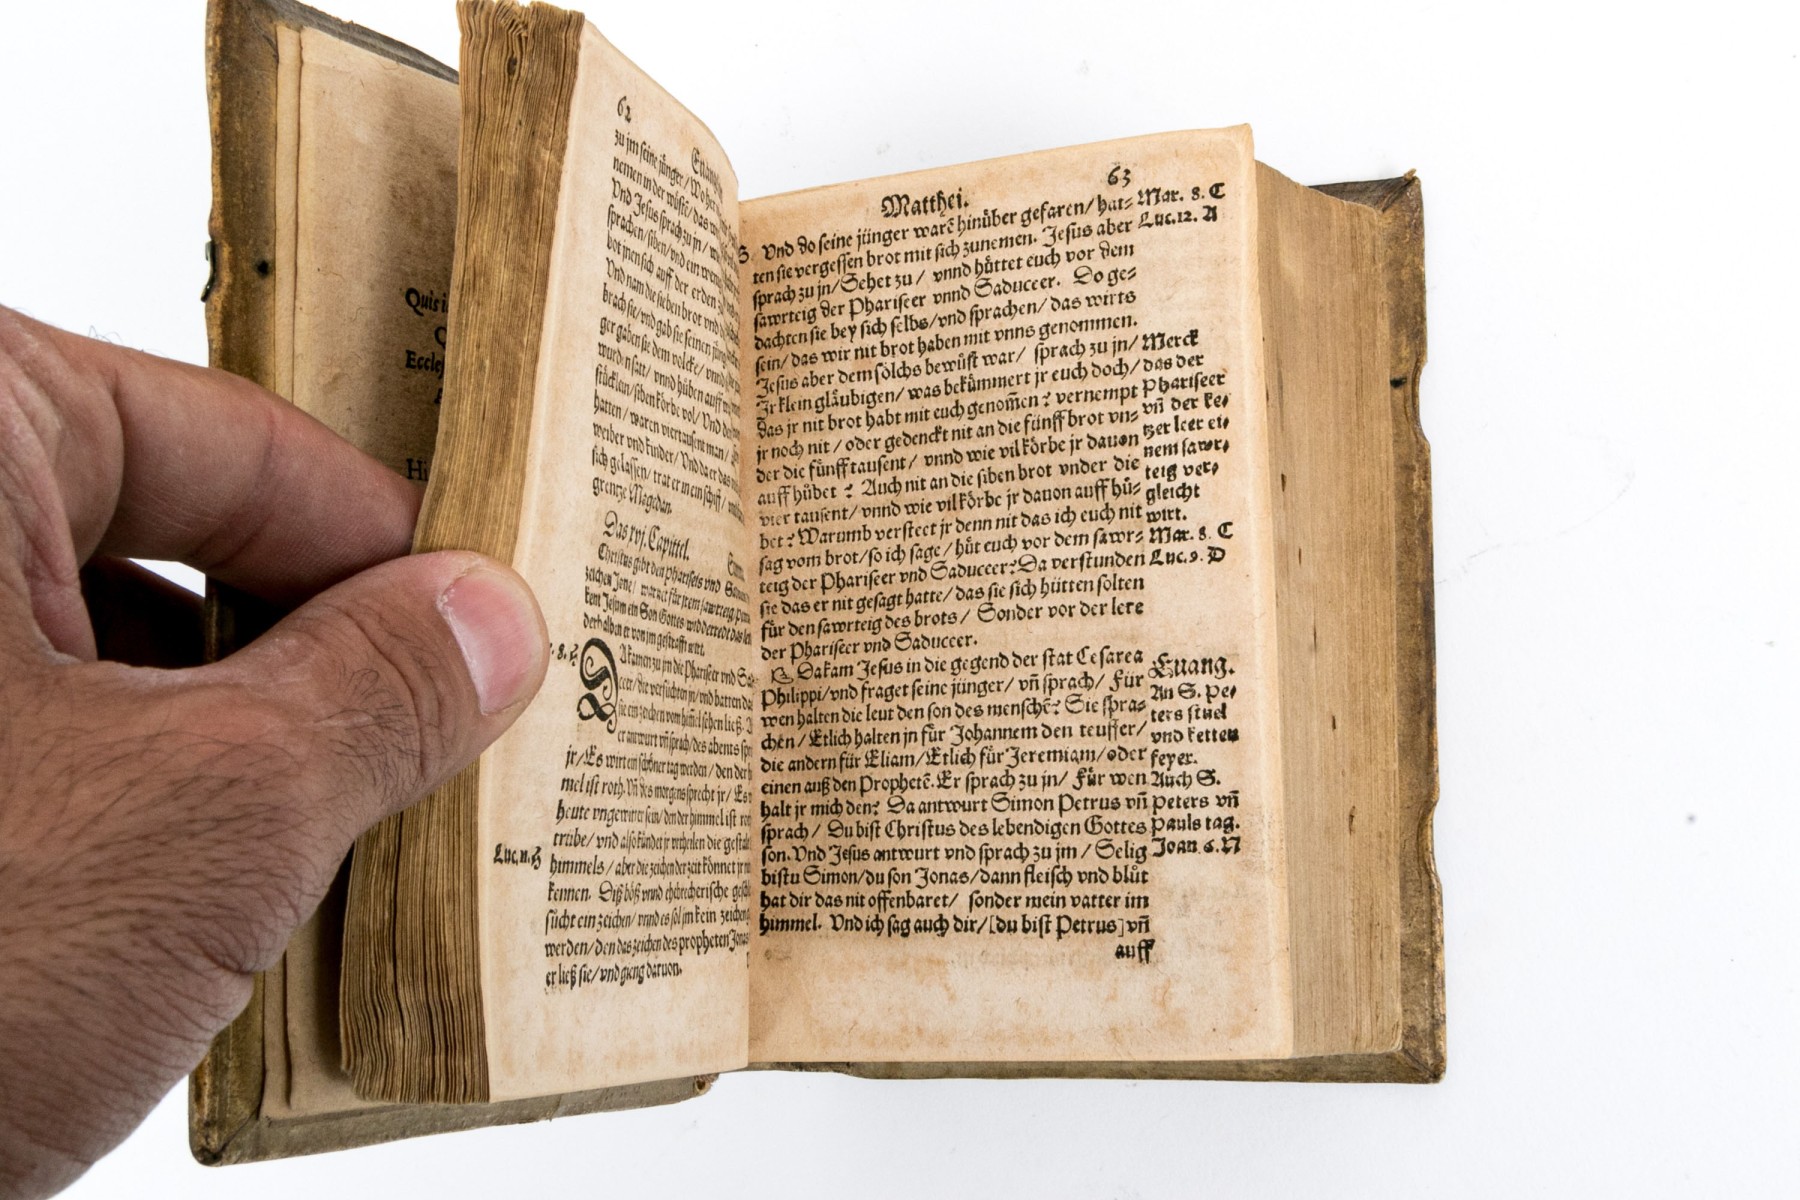 Quis i
Eccles
Hi
62
Euang
zu jm seine jünger / Wo her
nemen in der wüste / das wi
Vnd Jesus sprach zu jn / wie
sprachen / siben / vnd ein wenig
bot jnen sich auff der erden
Vnd nam die siben brot vnd
brach sie / vnd gab sie seinen jüng
ger gaben sie dem volcke / vnnd
wurden satt / vnnd hüben auff
stücklein / siben körbe vol / Vnd die
hatten / waren viertausent man /
weiber vnd kinder / Vnd da er das
sich gelassen / trat er in ein schiff /
grentze Magedan.
Das xvj. Capittel.
Christus gibt den Phariseis vnd
zeichen Jone / warnet für jrem sawrteig
kent Jesum ein Son Gottes widderredt das
derhalben er von jm gestrafft wirt.
. 8.
DA kamen zu jm die Phariseer vnd Sa
ceer / die versuchten jn / vnd batten da
sie ein zeichen vom himel sehen ließ.
er antwurt vñ sprach / des abents spr
jr / Es wirt ein schöner tag werden / den der
mel ist roth. Vñ des morgens sprecht jr / Es
heute vngewitter sein / den der himmel ist rot
trübe / vnd also kündet jr vrtheilen die gestalt
Luc. 11.
himmels / aber die zeichen der zeit könnet jr
kennen. Diß böß vnnd ehebrecherische
sücht ein zeichen / vnnd es sol jm kein zeichen
werden / den das zeichen des propheten Jonas
er ließ sie / vnd gieng daruon.
63
Matthei.
Vnd do seine jünger warē hinüber gefaren / hat=
ten sie vergessen brot mit sich zunemen. Jesus aber
sprach zu jn / Sehet zu / vnnd hüttet euch vor dem
sawrteig der Phariseer vnnd Saduceer. Do ge=
dachten sie bey sich selbs / vnd sprachen / das wirts
sein / das wir nit brot haben mit vnns genommen.
Jesus aber dem sölchs bewüst war / sprach zu jn /
Jr klein gläubigen / was bekümmert jr euch doch /
das jr nit brot habt mit euch genom̄en? vernempt
jr noch nit / oder gedenckt nit an die fünff brot vn=
der die fünff tausent / vnnd wie vil körbe jr dauon
auff hübet? Auch nit an die siben brot vnder die
vier tausent / vnnd wie vil körbe jr dauon auff hü=
bet? Warumb versteet jr denn nit das ich euch nit
sag vom brot / so ich sage / hüt euch vor dem sawr=
teig der Phariseer vnd Saduceer? Da verstunden
sie das er nit gesagt hatte / das sie sich hütten solten
für den sawrteig des brots / Sonder vor der lere
der Phariseer vnd Saduceer.
Da kam Jesus in die gegend der stat Cesarea
Philippi / vnd fraget seine jünger / vñ sprach / Für
wen halten die leut den son des menschē? Sie spra=
chen / Etlich halten jn für Johannem den teuffer /
die andern für Eliam / Etlich für Jeremiam / oder
einen auß den Prophetē. Er sprach zu jn / Für wen
halt jr mich den? Da antwurt Simon Petrus vñ
sprach / Du bist Christus des lebendigen Gottes
son. Vnd Jesus antwurt vnd sprach zu jm / Selig
bistu Simon / du son Jonas / dann fleisch vnd blüt
hat dir das nit offenbaret / sonder mein vatter im
himmel. Vnd ich sag auch dir / [du bist Petrus] vñ
auff
Mar. 8. C
Luc. 12. A
Merck
das der
Phariseer
vñ der ke=
tzer leer ei=
nem sawr=
teig ver=
gleicht
wirt.
Mar. 8. C
Luc. 9. D
Euang.
An S. Pe=
ters stuel
vnd ketten
feyer.
Auch S.
Peters vñ
Pauls tag.
Joan. 6. N